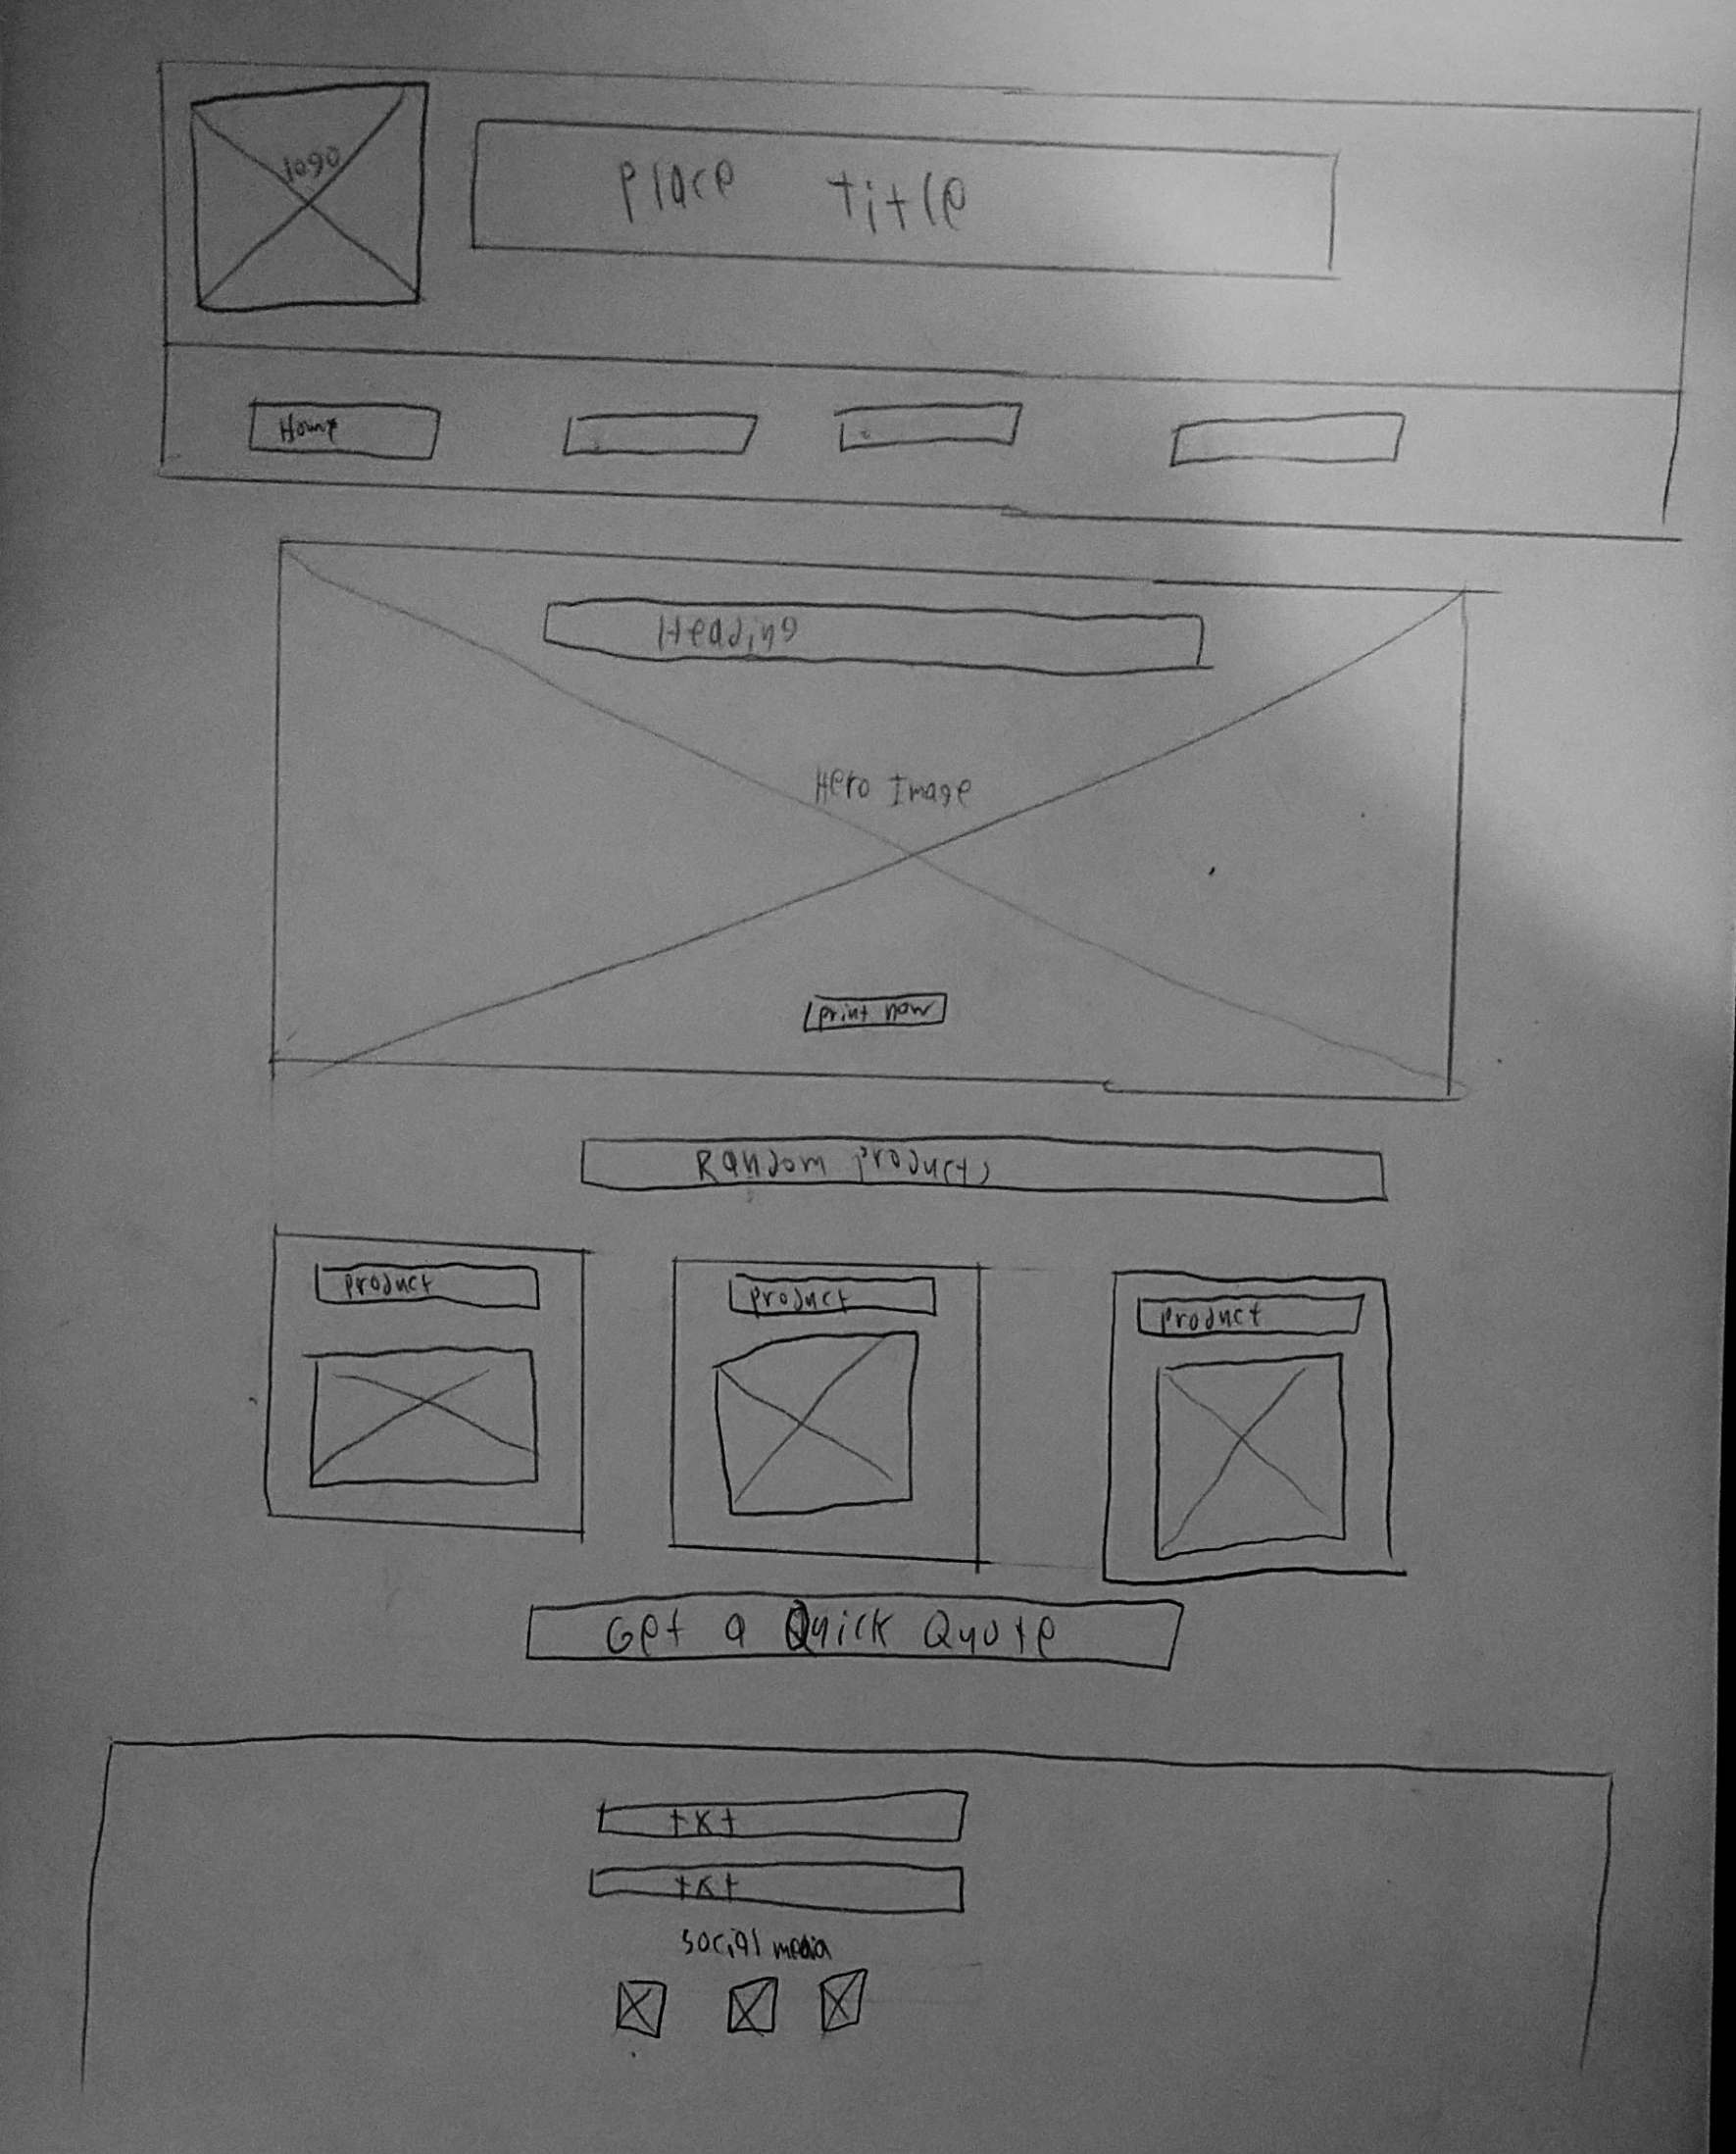 logo
Place title
Home
Heading
Hero Image
print now
Random products
product
product
product
Get a Quick Quote
txt
txt
social media